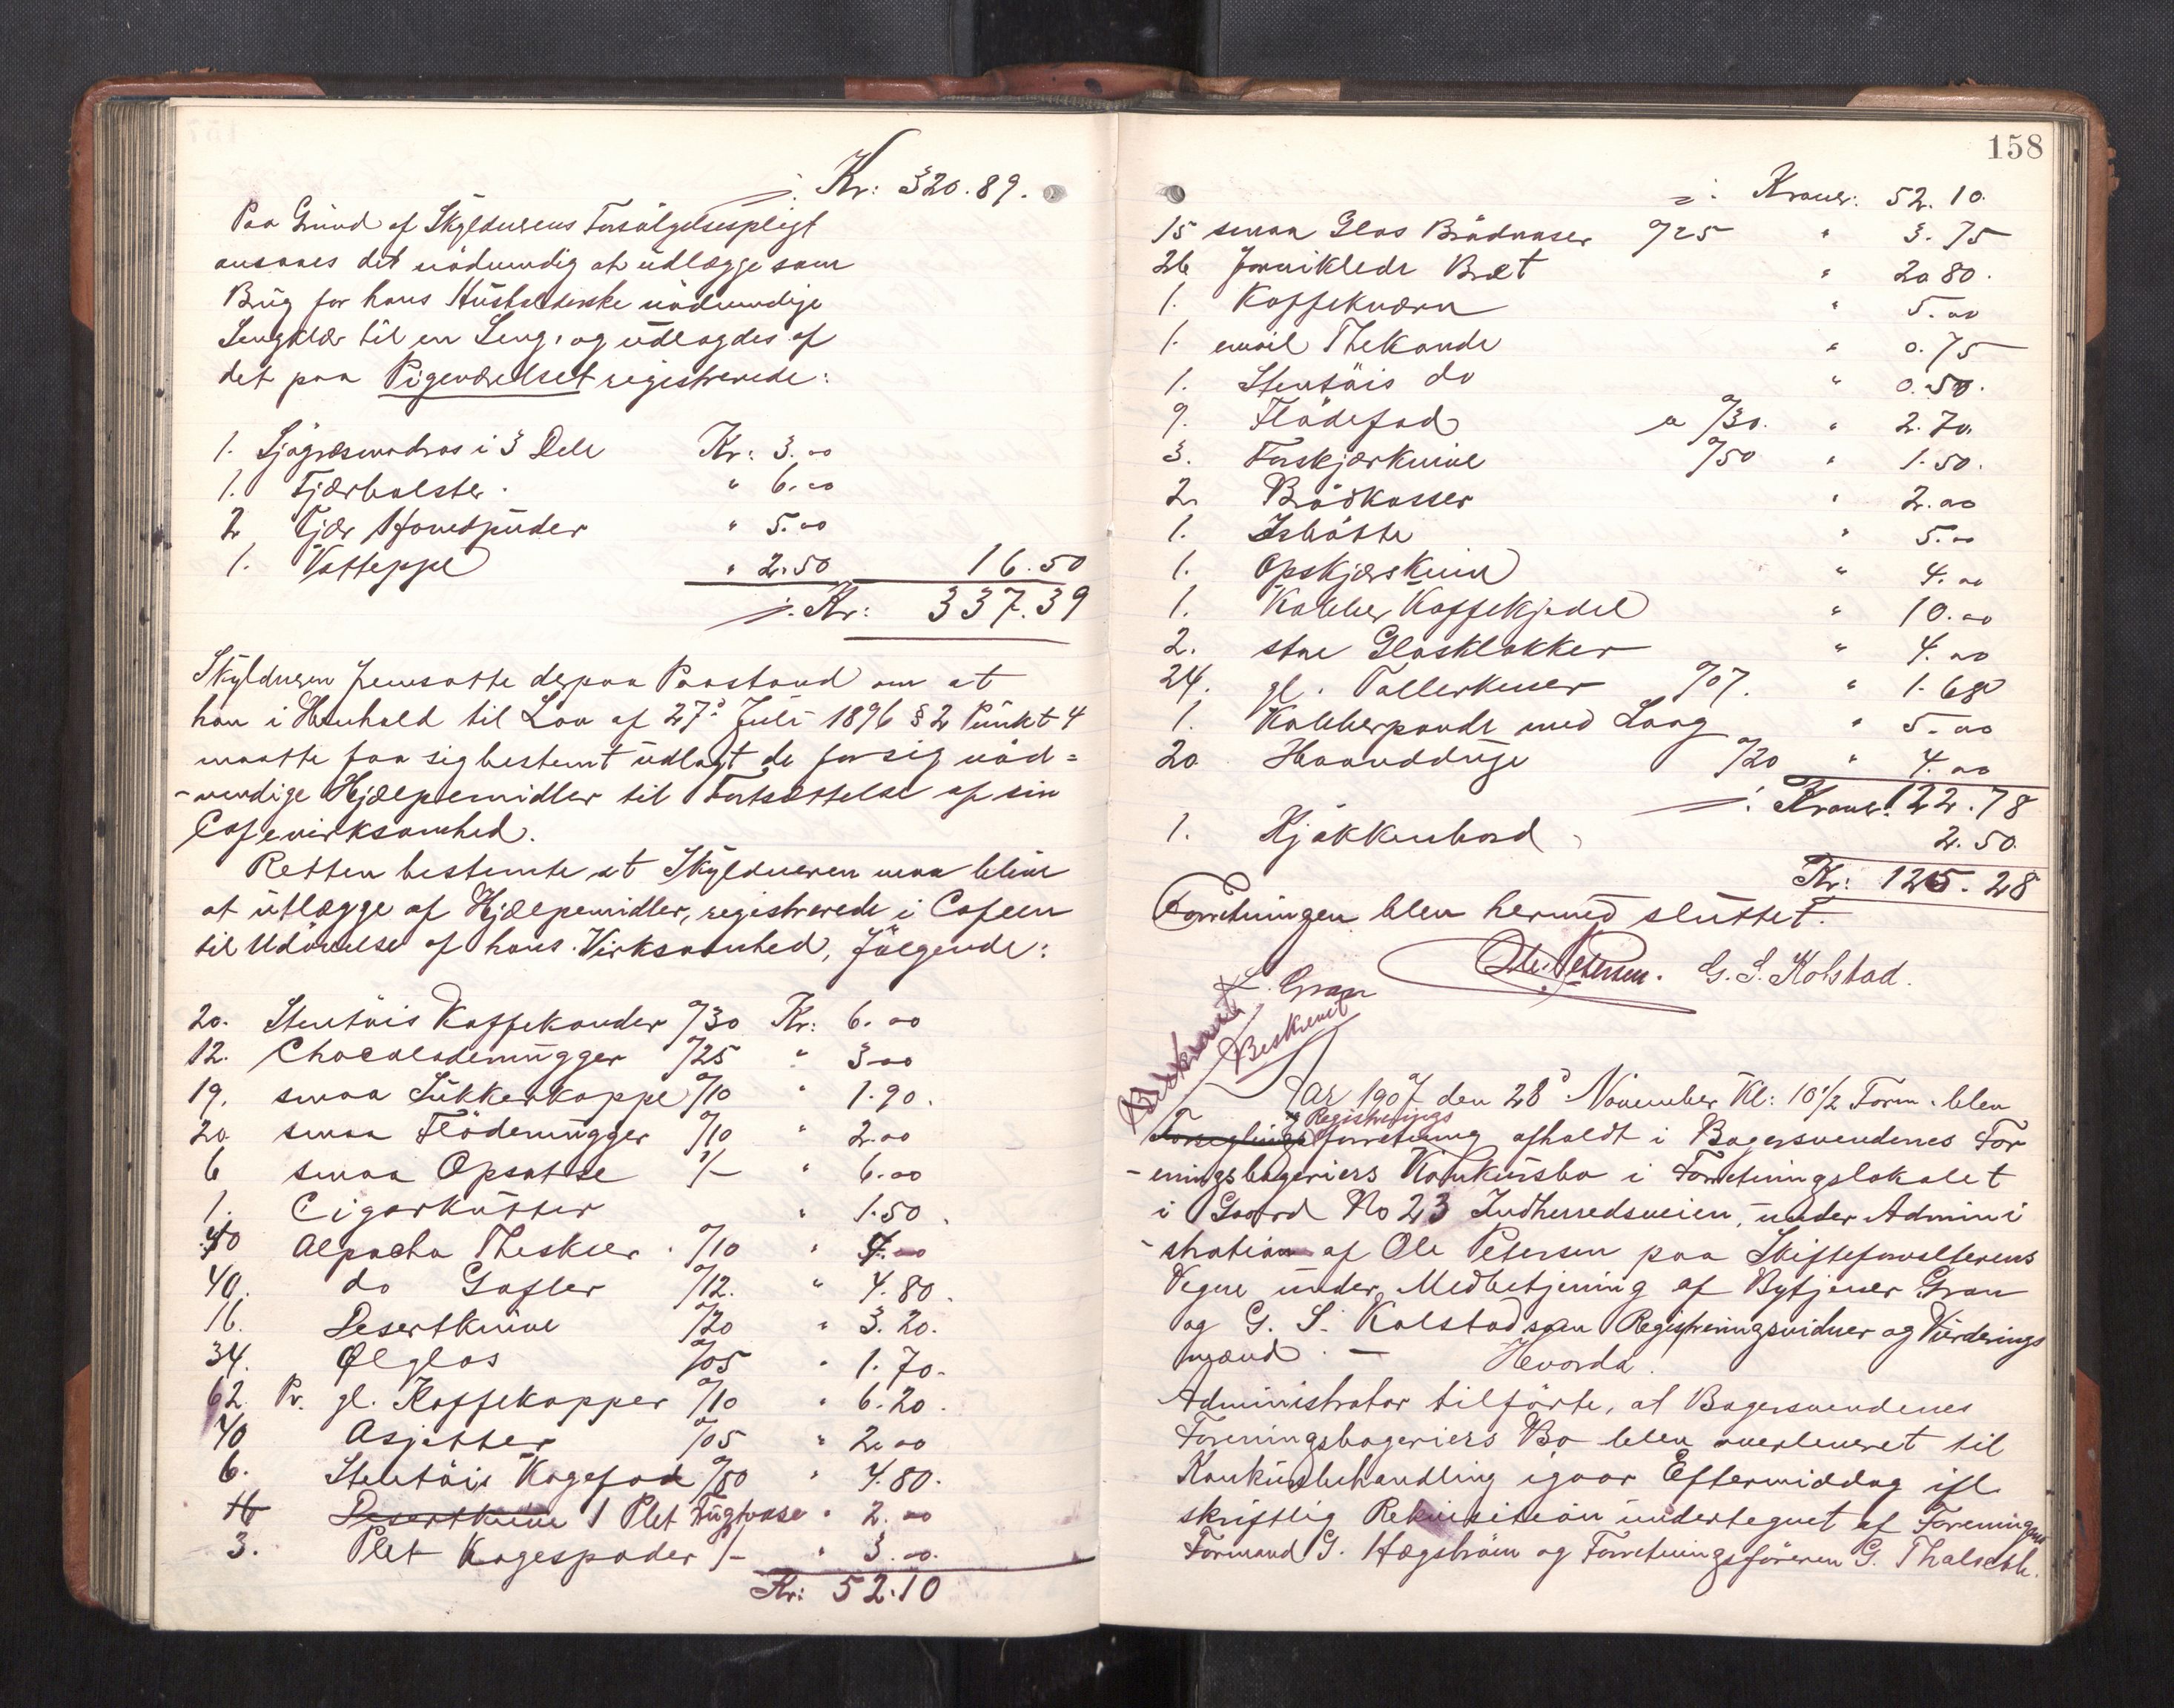 ÷ Kr: 320.89.
Paa Grund af Skyldnerens Forsørgelsespligt
ansaaes det nödvendig at udlægge som
Brug for hans Husholderske nödvendige
Sengklær til en Seng, og udlagdes af
det paa Pigeværelset registrerede:
1. Sjögræsmadras i 3 Dele Kr: 3.00
1. Fjærbolster. " 6.00
2 Fjær Hovedpuder " 5.00
1. Vatteppe " 2.50 16.50
÷ Kr: 337.39
Skyldneren fremsatte derpaa Paastand om at
han i Henhold til Lov af 27d Juli 1896 § 2 Punkt 4
maatte faa sig bestemt udlagt de for sig nöd=
-vendige Hjælpemidler til Fortsættelse af sin
Cafevirksomhed.
Retten bestemte at Skyldneren maa blive
at utlægge af Hjælpemidler, registrerede i Cafeen
til Udövelse af hans Virksomhed, fölgende:
20. Stentöis Kaffekander 0/30 Kr: 6.00
12. Chocolademugger 0/25 " 3.00
19. smaa Sukkerkoppe 0/10 " 1.90.
20. smaa Flödemugger 0/10 " 2.00
6 smaa Opsatse 1/- " 6.00
1. Cigarkutter " 1.50.
40 Alpacha Theskeer 0/10 " 4.00
40. do Gafler 0/12. " 4.80.
16. Desertknive 0/20 " 3.20.
34. Ølglas 0/05 " 1.70.
62. Pr. gl. Kaffekopper 0/10 " 6.20.
40 Asjetter 0/05 " 2.00
6. Stentöis Kagefad 0/80 " 4.80.
16 Desertknive 1 Plet Frugtvase " 2.00
3. Plet Kagespader 1/- " 3.00.
Kr: 52.10
158
÷ Kroner: 52.10.
15 smaa Glas Brödvaser 0/25 " 3.75
26 forniklede Bret " 20.80.
1. Kaffekværn " 5.00
1. email Thekande " 0.75
1. Stentöis do " 0.50.
9. Flödefad a 0/30. " 2.70.
3. Forskjærknive 0/50 " 1.50.
2. Brödkasser " 2.00
1. Isbötte " 5.00
1. Opskjærskniv " 4.00
1. Kobber Kaffekjedel " 10.00
2. store Glasklokker " 4.00
24. gl. Tallerkener 0/07. " 1.68
1. Kobberpande med Laag " 5.00
20 Haandduge 0/20 " 4.00
÷ Kroner: 122.78
1. Kjökkenbord 2.50.
Kr: 125.28
Forretningen blev hermed sluttet.
Ole Petersen. G. S. Kolstad.
L. Gran
Beskrevet
Beskrevet
Aar 1907 den 28d November Kl: 10 1/2 Form. blev
Registrerings
Forseglingsforretning afholdt i Bagersvendenes For
-eningsbageriers Konkursbo i Forretningslokalet
i Gaard No 23 Indherredsveien, under Admini
-stration af Ole Petersen paa Skifteforvalterens
Vegne under Medbetjening af Bytjener Gran
og G. S. Kolstad som Registreringsvidner og Vurderings
mænd. — Hvorda.
Administrator tilförte, at Bagersvendenes
Foreningsbageriers Bo blev overleveret til
Konkursbehandling igaar Eftermiddag ifl.
skriftlig Rekvisition undertegnet af Foreningens
Formand G. Hægström og Forretningsföreren G.